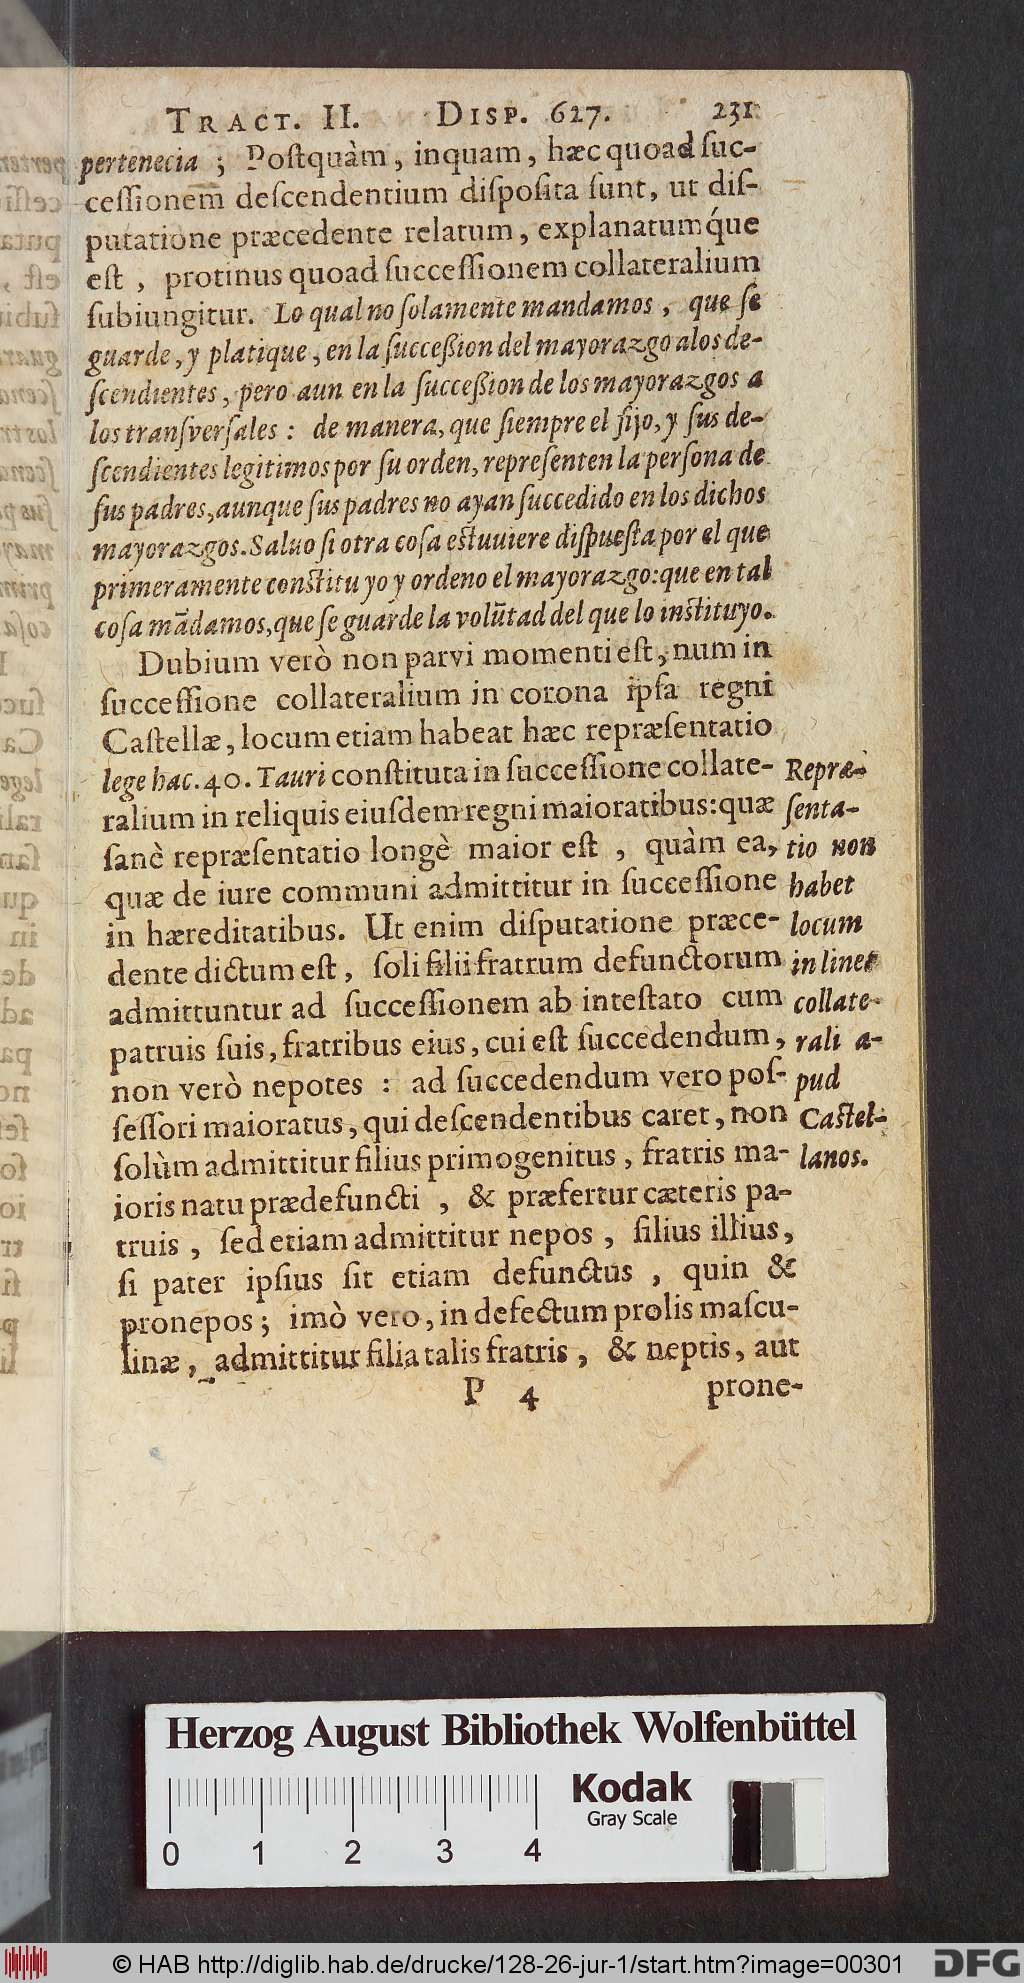 TRACT. II. DISP. 627. 231
pertenecia ; Poſtquàm, inquam, hæc quoad ſuc-
ceſſionem deſcendentium diſpoſita ſunt, ut diſ-
putatione præcedente relatum, explanatumq́ue
eſt , protinus quoad ſucceſſionem collateralium
ſubiungitur. Lo qual no ſolamente mandamos , que ſe
guarde, y platique, en la ſucceßion del mayorazgo a los de-
ſcendientes, pero aun en la ſucceßion de los mayorazgos a
los tranſverſales : de manera, que ſiempre el fijo, y ſus de-
ſcendientes legitimos por ſu orden, repreſenten la perſona de
ſus padres, aunque ſus padres no ayan ſuccedido en los dichos
mayorazgos. Saluo ſi otra coſa eſtuuiere diſpueſta por el que
primeramente conſtituyo y ordeno el mayorazgo: que en tal
coſa mādamos, que ſe guarde la volūtad del que lo inſtituyo.
Dubium verò non parvi momenti eſt, num in
ſucceſſione collateralium in corona ipſa regni
Caſtellæ, locum etiam habeat hæc repræſentatio
lege hac. 40. Tauri conſtituta in ſucceſſione collate-
ralium in reliquis eiuſdem regni maioratibus: quæ
ſanè repræſentatio longè maior eſt , quàm ea,
quæ de iure communi admittitur in ſucceſſione
in hæreditatibus. Ut enim diſputatione præce-
dente dictum eſt, ſoli filii fratrum defunctorum
admittuntur ad ſucceſſionem ab inteſtato cum
patruis ſuis, fratribus eius, cui eſt ſuccedendum,
non verò nepotes : ad ſuccedendum vero poſ-
ſeſſori maioratus, qui deſcendentibus caret, non
ſolùm admittitur filius primogenitus, fratris ma-
ioris natu prædefuncti , & præfertur cæteris pa-
truis , ſed etiam admittitur nepos , filius illius,
ſi pater ipſius ſit etiam defunctus , quin &
pronepos; imò vero, in defectum prolis maſcu-
linæ, admittitur filia talis fratris, & neptis, aut
P 4 prone-
Repræ-
ſenta-
tio non
habet
locum
in linea
collate-
rali a-
pud
Caſtel-
lanos.
Herzog August Bibliothek Wolfenbüttel
Kodak
Gray Scale
0 1 2 3 4
© HAB http://diglib.hab.de/drucke/128-26-jur-1/start.htm?image=00301
DFG